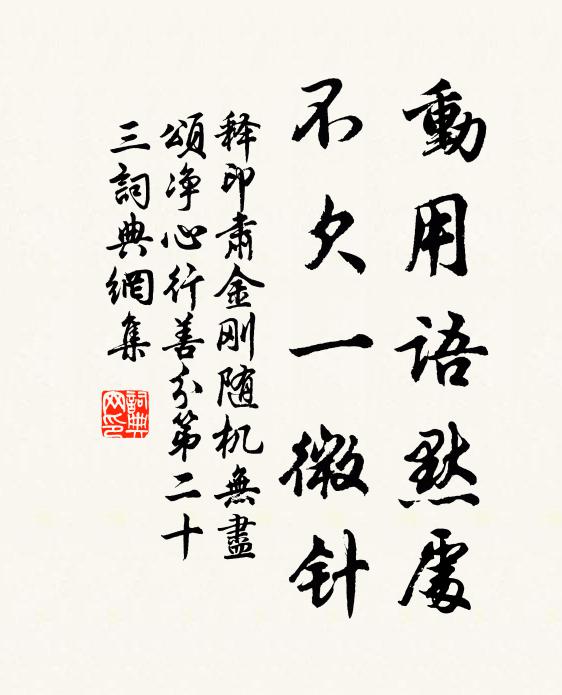 動用語默處
不欠一微针
释印肃金刚随机無盡
頌净心行善分第二十
三詞典網集
詞典网印